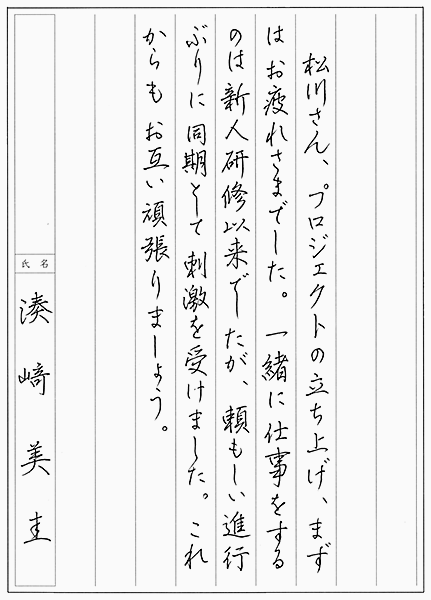 松川さん、プロジェクトの立ち上げ、まず
はお疲れさまでした。一緒に仕事をする
のは新人研修以来でしたが、頼もしい進行
ぶりに同期として刺激を受けました。これ
からもお互い頑張りましょう。
氏名
湊﨑美圭